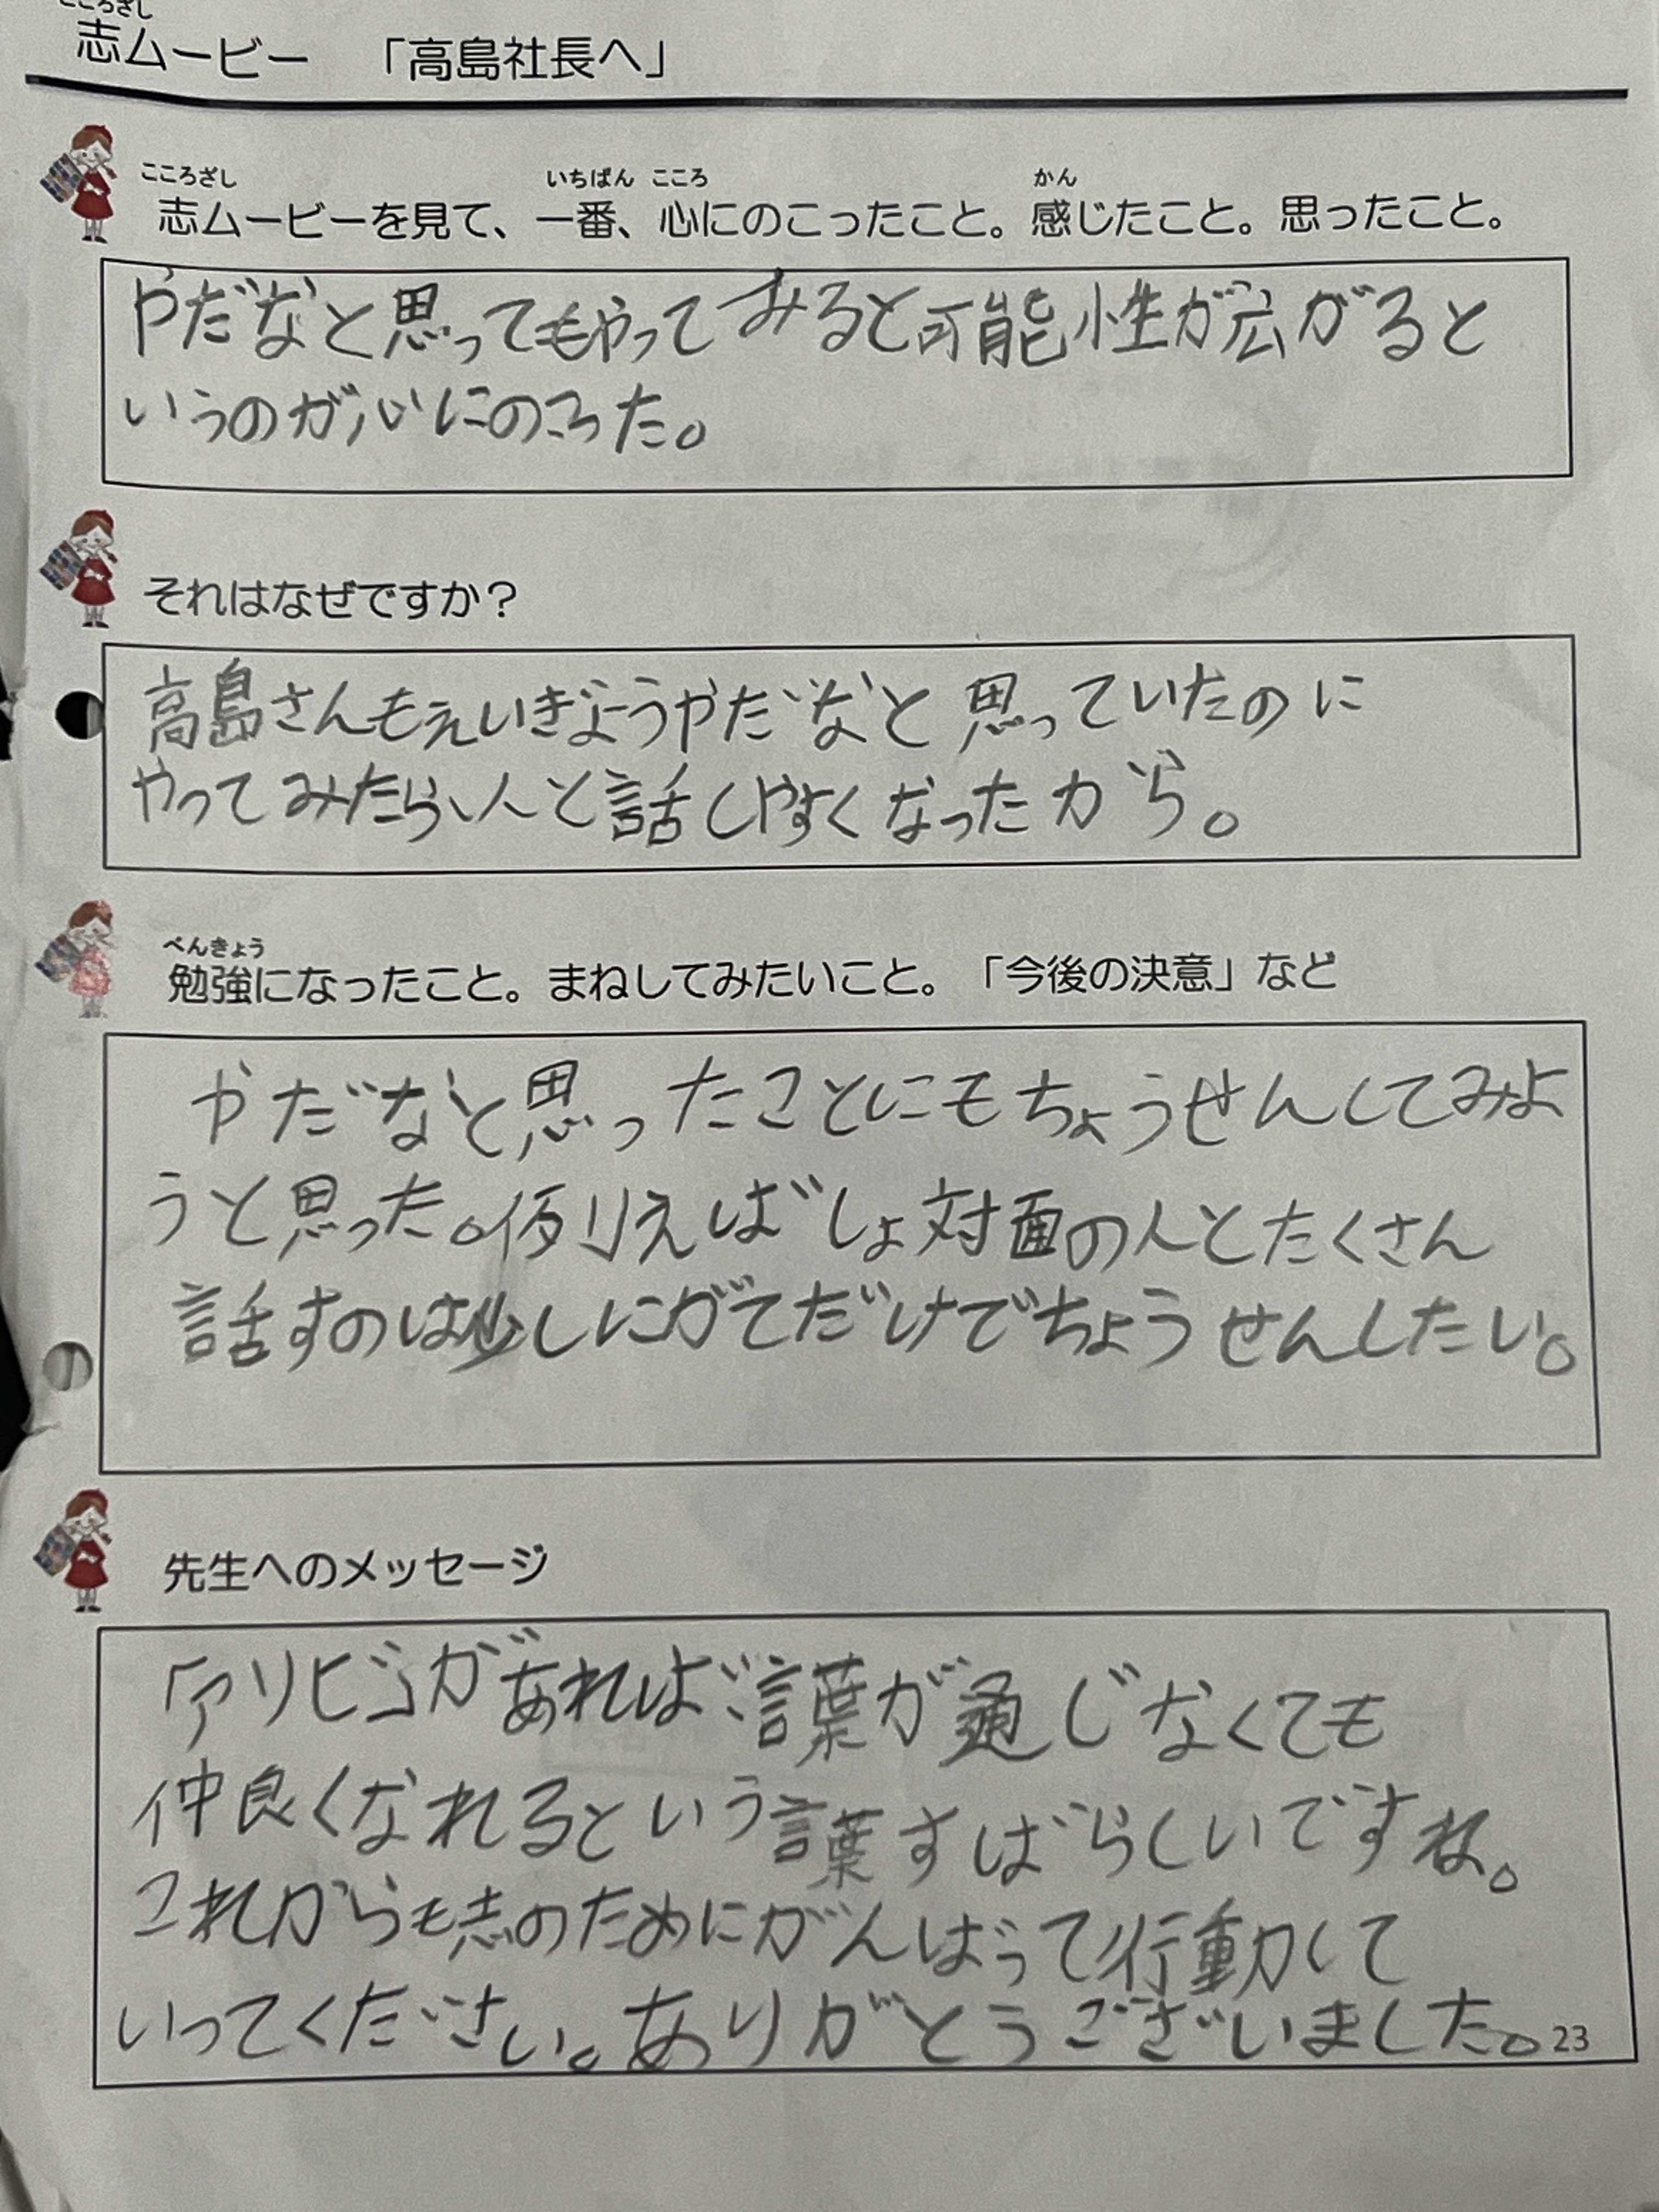 こころざし
志ムービー 「高島社長へ」
こころざし いちばん こころ かん
志ムービーを見て、一番、心にのこったこと。感じたこと。思ったこと。
やだなと思ってもやってみると可能性が広がると
いうのが心にのころた。
それはなぜですか？
高島さんもえいぎょうやだなと思っていたのに
やってみたら、人と話しやすくなったから。
べんきょう
勉強になったこと。まねしてみたいこと。「今後の決意」など
やだなと思ったことにもちょうせんしてみよ
うと思った。例えばしょ対面の人とたくさん
話すのは少しにがてだけでちょうせんしたい。
先生へのメッセージ
「アソビゴ」があれば言葉が通じなくても
仲良くなれるという言葉すばらしいですね。
これからも志のためにがんばって行動して
いってください。ありがとうございました。
23